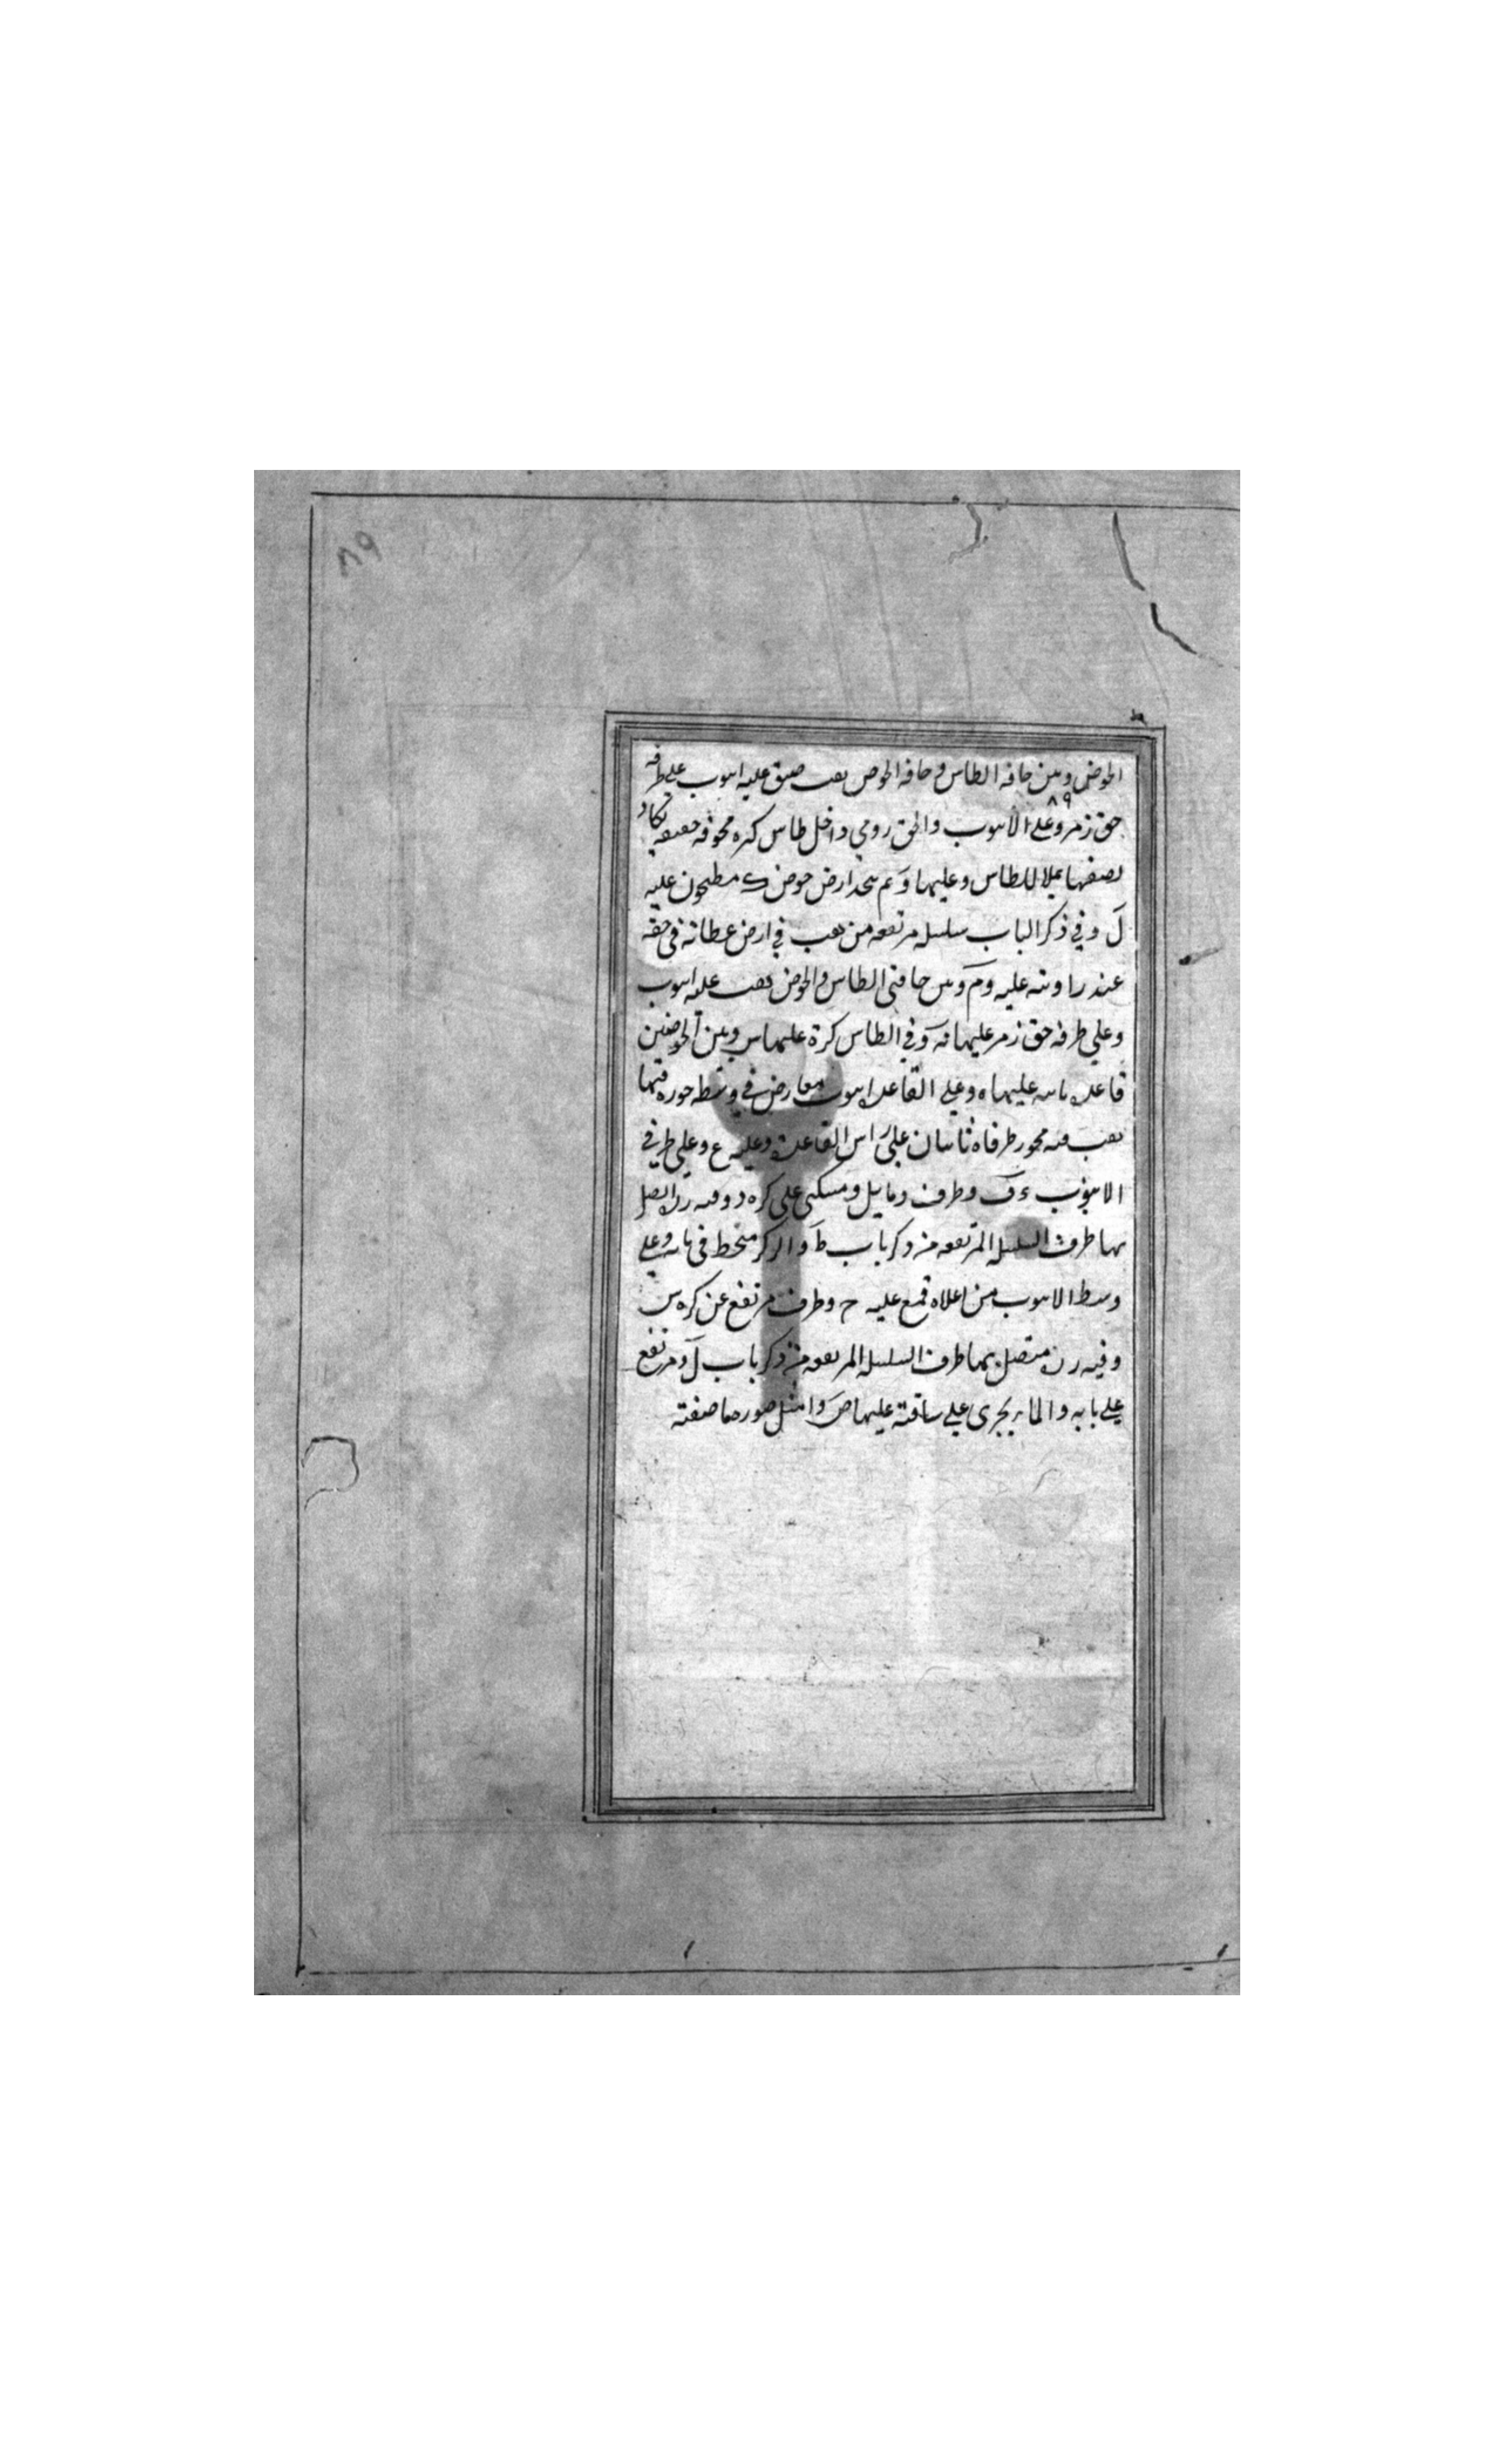 ٨٩
الحوض وبين حافه الطاس وحافه الحوض ثقب ضيق عليه انبوب على طرفه
٨٩
حق زمر وعلى الانبوب والحق رومي وداخل طاس كره مجوفه خفيفه تكاد
نصفها يملا للطاس وعليها و ارض حوض ك مطجون عليه
ل وفي ذكر الباب سلسله مرتفعه من ثقب في ارض عطاته في حقه
عند عليه وم وبين حافتى الطاس والحوض ثقب عليه انبوب
وعلى طرفه حق زمر عليها فه وفي الطاس كرة عليها س وبين الحوضين
قاعده عليها ه وعلى القاعده انبوب معارض في وسطه فيها
ثقب فيه محور طرفاه ثابتان على راس القاعدة وعليه ع وعلى طرفي
الانبوب ء ف وطرف د مايل ومسكبى على كره د وفيه رن اتصل
بها طرف السلسله المرتفعه من ذكر باب ط والركر منحط في بابه وعلى
وسط الانبوب من اعلاه قمع عليه ح وطرف مرتفع عن كره س
وفيه رن متصل بها طرف السلسله المرتفعه من ذكر باب ل ومرتفع
على بابه والماء يجرى على ساقته عليها ص وامثل صوره ما صفته